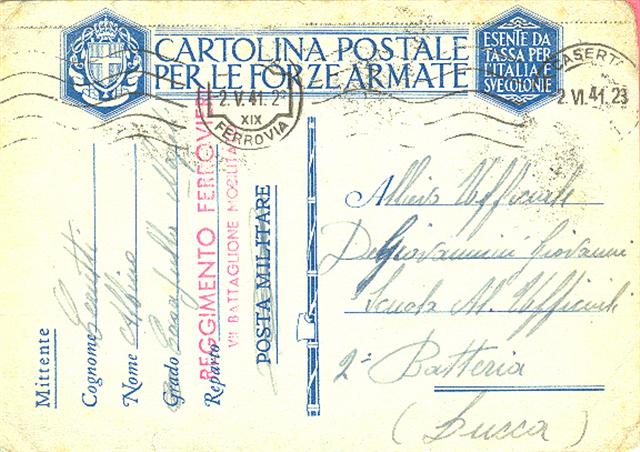 CARTOLINA POSTALE
PER LE FORZE ARMATE
ESENTE DA
TASSA PER
L'ITALIA E
SUE COLONIE
CASERTA
2.VI.41.23
2.V.41.2
XIX
FERROVIA
Mittente
Cognome
Nome Albino
Grado
Reparto
REGGIMENTO FERROVIERI
VII BATTAGLIONE MOBILITA
POSTA MILITARE
Allievo Ufficiale
DeGiovannini Giovanni
Scuola Al. Ufficiali
2ª Batteria
(Lucca)